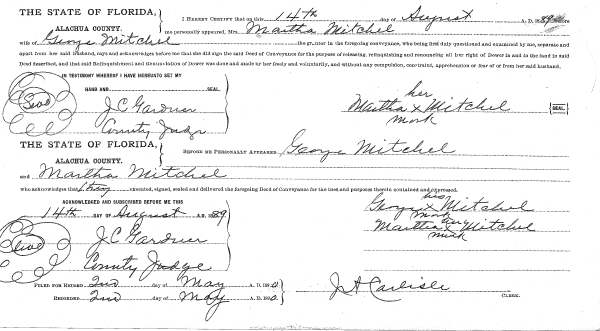 THE STATE OF FLORIDA,
ALACHUA COUNTY.
I HEREBY CERTIFY that on this 14th day of August A. D. 1889 before
me personally appeared, Mrs Martha Mitchel
wife of George Mitchel the grantor in the foregoing conveyance, who being first duly questioned and examined by me, separate and
apart from her said husband, says and acknowledges before me that she did sign the said Deed of Conveyance for the purpose of releasing, relinquishing and renouncing all her right of Dower in and to the land in said
Deed described, and that said Relinquishment and Renunciation of Dower was done and made by her freely and voluntarily, and without any compulsion, constraint, apprehension or fear of or from her said husband,
IN TESTIMONY WHEREOF I HAVE HEREUNTO SET MY
HAND AND SEAL
Seal
J C Gardner
County Judge
her
Martha x Mitchel
mark
SEAL
THE STATE OF FLORIDA,
ALACHUA COUNTY.
BEFORE ME PERSONALLY APPEARED George Mitchel
and Martha Mitchel
who acknowledges that they executed, signed, sealed and delivered the foregoing Deed of Conveyance for the uses and purposes therein contained and expressed.
ACKNOWLEDGED AND SUBSCRIBED BEFORE ME THIS
14th DAY OF August A. D. 1889
Seal
J C Gardner
County Judge
his
George x Mitchel
mark
her
Martha x Mitchel
mark
FILED FOR RECORD 2nd day of May A. D. 1890
RECORDED 2nd day of May A. D. 1890
J A Carlisle
CLERK.